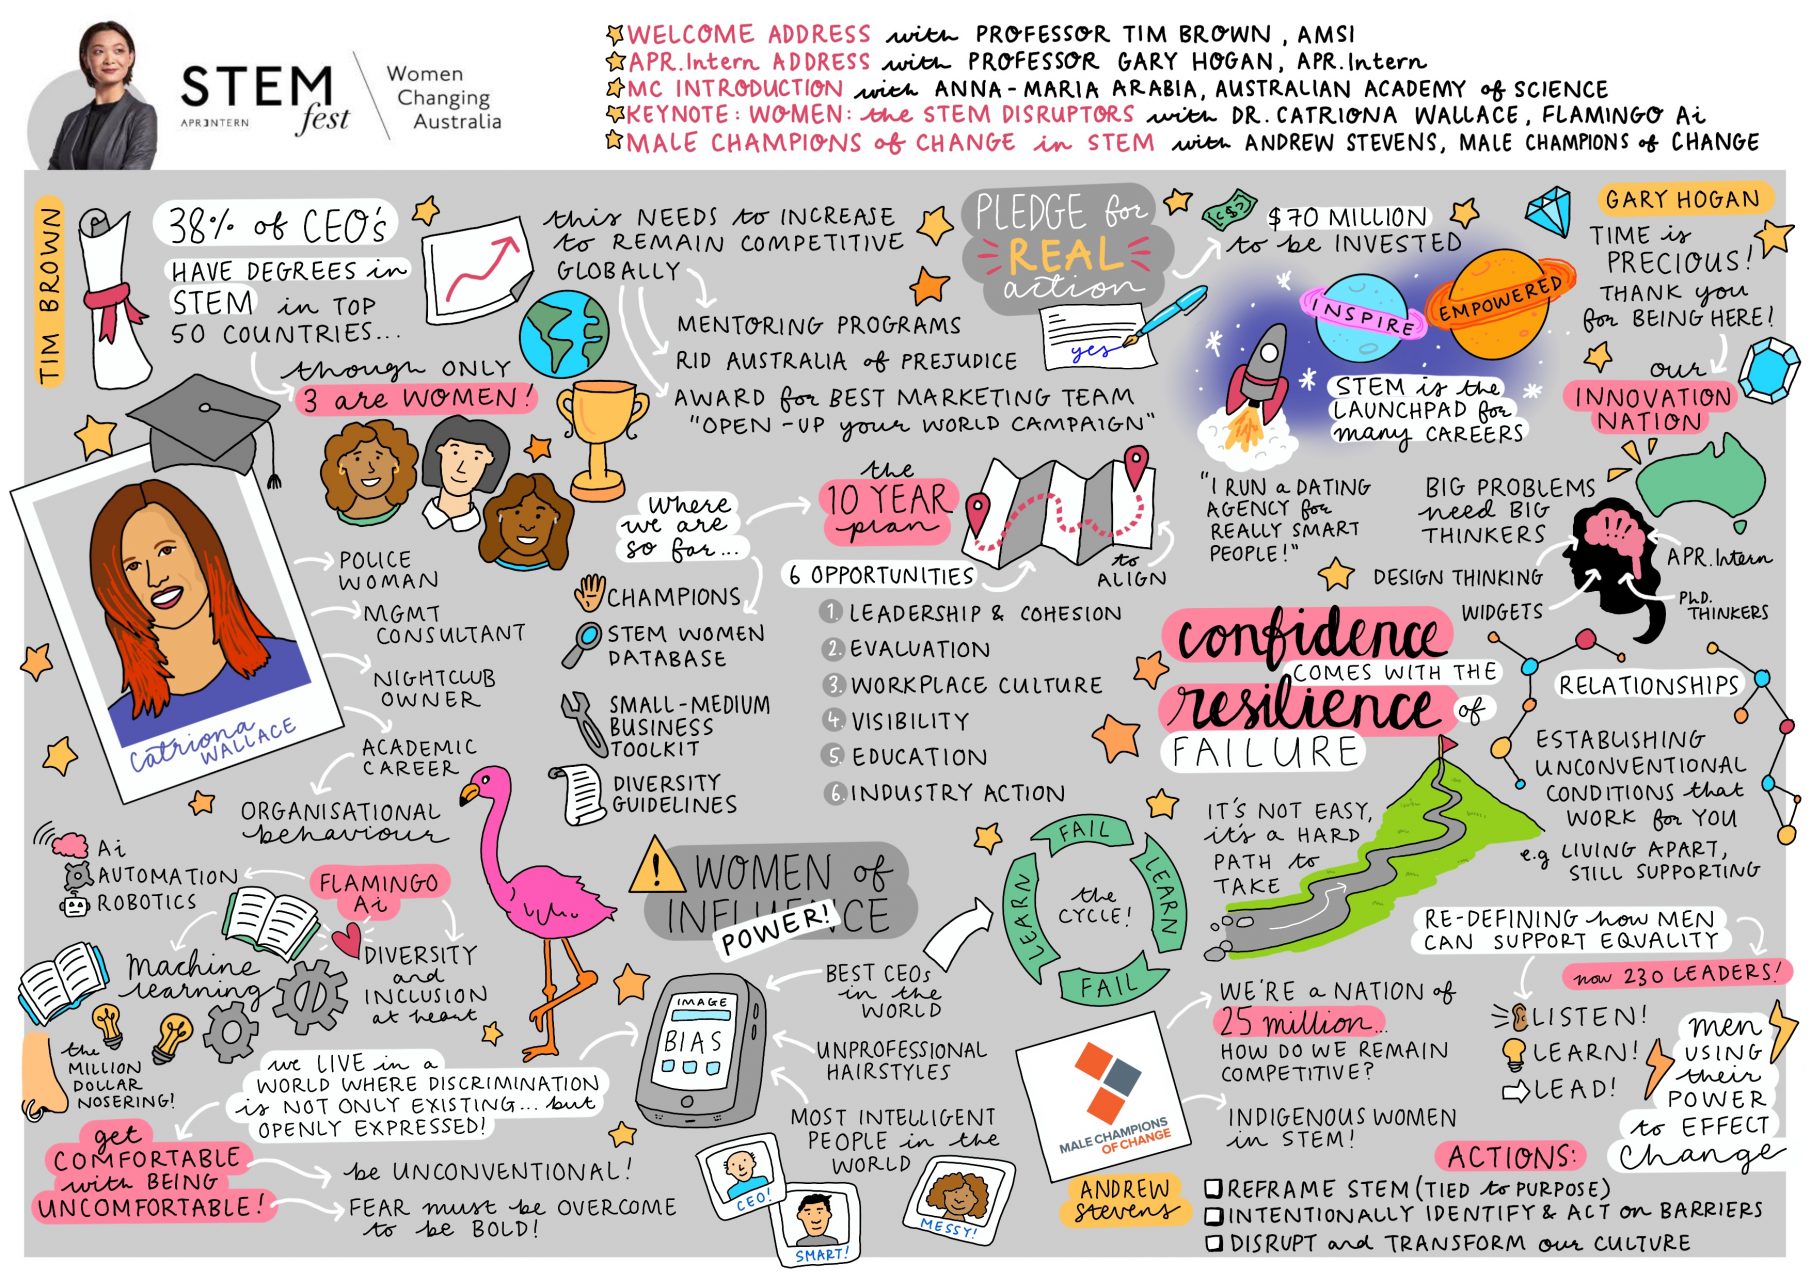 STEM
APR.INTERN
fest
Women
Changing
Australia
WELCOME ADDRESS with PROFESSOR TIM BROWN, AMSI
APR.Intern ADDRESS with PROFESSOR GARY HOGAN, APR.Intern
MC INTRODUCTION with ANNA-MARIA ARABIA, AUSTRALIAN ACADEMY of SCIENCE
KEYNOTE: WOMEN: the STEM DISRUPTORS with DR. CATRIONA WALLACE, FLAMINGO Ai
MALE CHAMPIONS of CHANGE in STEM with ANDREW STEVENS, MALE CHAMPIONS of CHANGE
TIM BROWN
38% of CEO's
HAVE DEGREES in
STEM in TOP
50 COUNTRIES...
though ONLY
3 are WOMEN!
this NEEDS to INCREASE
to REMAIN COMPETITIVE
GLOBALLY
MENTORING PROGRAMS
RID AUSTRALIA of PREJUDICE
AWARD for BEST MARKETING TEAM
"OPEN-UP your WORLD CAMPAIGN"
PLEDGE for
REAL
action
yes
$70 MILLION
to be INVESTED
INSPIRE
EMPOWERED
STEM is the
LAUNCHPAD for
many CAREERS
GARY HOGAN
TIME is
PRECIOUS!
THANK you
for BEING HERE!
our
INNOVATION
NATION
"I RUN a DATING
AGENCY for
REALLY SMART
PEOPLE!"
BIG PROBLEMS
need BIG
THINKERS
!!!
DESIGN THINKING
WIDGETS
APR.Intern
PhD.
THINKERS
Catriona
WALLACE
POLICE
WOMAN
MGMT
CONSULTANT
NIGHTCLUB
OWNER
ACADEMIC
CAREER
ORGANISATIONAL
behaviour
Where
we are
so far...
CHAMPIONS
STEM WOMEN
DATABASE
SMALL-MEDIUM
BUSINESS
TOOLKIT
DIVERSITY
GUIDELINES
the
10 YEAR
plan
to
ALIGN
6 OPPORTUNITIES
1. LEADERSHIP & COHESION
2. EVALUATION
3. WORKPLACE CULTURE
4. VISIBILITY
5. EDUCATION
6. INDUSTRY ACTION
confidence
COMES WITH THE
resilience of
FAILURE
IT'S NOT EASY,
it's a HARD
PATH to
TAKE
RELATIONSHIPS
ESTABLISHING
UNCONVENTIONAL
CONDITIONS that
WORK for YOU
e.g LIVING APART,
STILL SUPPORTING
Ai
AUTOMATION
ROBOTICS
FLAMINGO
Ai
Machine
learning
DIVERSITY
and
INCLUSION
at heart
the
MILLION
DOLLAR
NOSERING!
we LIVE in a
WORLD WHERE DISCRIMINATION
is NOT ONLY EXISTING... but
OPENLY EXPRESSED!
get
COMFORTABLE
with BEING
UNCOMFORTABLE!
be UNCONVENTIONAL!
FEAR must be OVERCOME
to be BOLD!
!
WOMEN of
INFLUENCE
POWER!
IMAGE
BIAS
BEST CEOs
in the
WORLD
UNPROFESSIONAL
HAIRSTYLES
MOST INTELLIGENT
PEOPLE in the
WORLD
CEO!
SMART!
MESSY!
FAIL
LEARN
FAIL
LEARN
the
CYCLE!
MALE CHAMPIONS
OF CHANGE
ANDREW
Stevens
WE'RE a NATION of
25 million...
HOW DO WE REMAIN
COMPETITIVE?
INDIGENOUS WOMEN
in STEM!
RE-DEFINING how MEN
CAN SUPPORT EQUALITY
now 230 LEADERS!
LISTEN!
LEARN!
LEAD!
men
USING
their
POWER
to EFFECT
Change
ACTIONS:
REFRAME STEM (TIED to PURPOSE)
INTENTIONALLY IDENTIFY & ACT on BARRIERS
DISRUPT and TRANSFORM our CULTURE